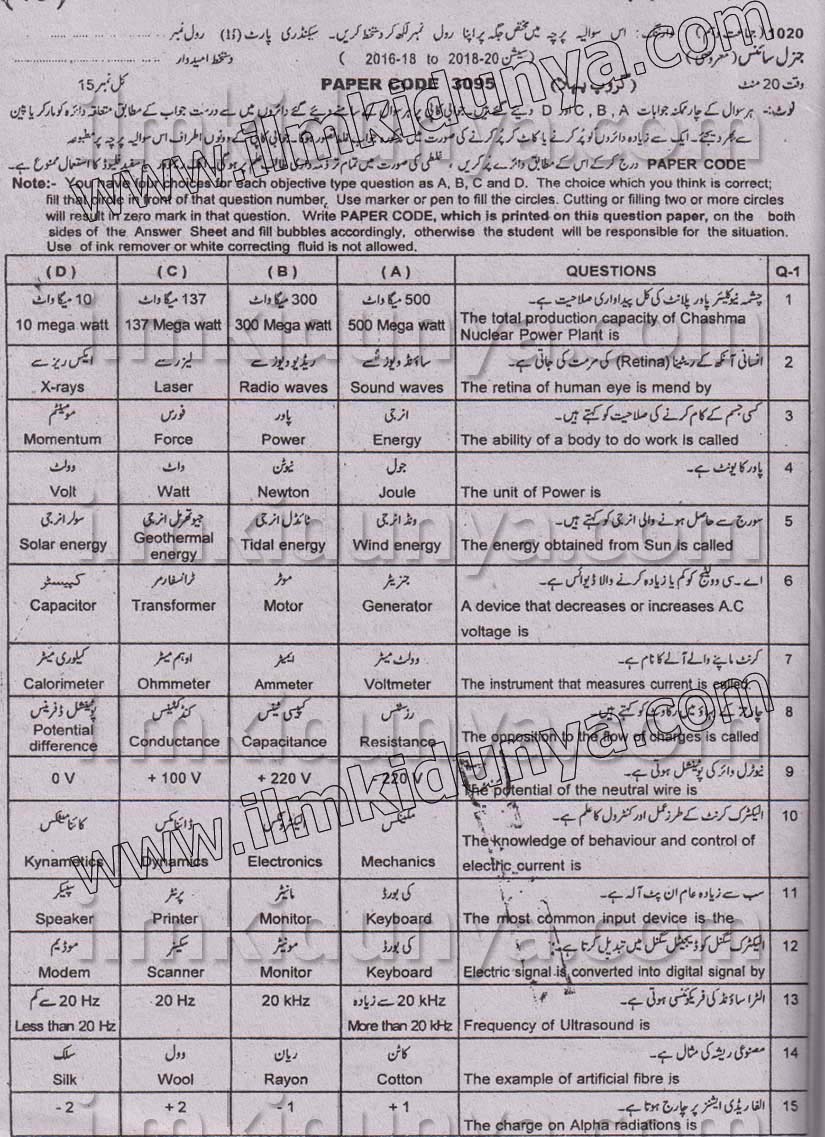 1020 (جماعت دہم) وارننگ: اس سوالیہ پرچہ میں مختص جگہ پر اپنا رول نمبر لکھ کر دستخط کریں۔ سیکنڈری پارٹ (II) رول نمبر
جنرل سائنس (معروضی) (سیشن 20-2018 to 2016-18) دستخط امیدوار
وقت 20 منٹ (گروپ پہلا) PAPER CODE 3095 کل نمبر 15
نوٹ:- ہر سوال کے چار ممکنہ جوابات A ، B ، C اور D دیے گئے ہیں۔ جوابی کاپی پر ہر سوال کے سامنے دیے گئے دائروں میں سے درست جواب کے مطابق متعلقہ دائرہ کو مارکر یا پین
سے بھر دیجئے۔ ایک سے زیادہ دائروں کو پُر کرنے یا کاٹ کر پُر کرنے کی صورت میں مذکورہ جواب غلط تصور ہوگا۔ جوابی کاپی کے دونوں اطراف اس سوالیہ پرچہ پر مطبوعہ
PAPER CODE درج کر کے اس کے مطابق دائرے پُر کریں، غلطی کی صورت میں تمام تر ذمہ داری طالب علم پر ہوگی۔ سفید فلیوڈ کا استعمال ممنوع ہے۔
Note:- You have four choices for each objective type question as A, B, C and D. The choice which you think is correct;
fill that circle in front of that question number. Use marker or pen to fill the circles. Cutting or filling two or more circles
will result in zero mark in that question. Write PAPER CODE, which is printed on this question paper, on the both
sides of the Answer Sheet and fill bubbles accordingly, otherwise the student will be responsible for the situation.
Use of ink remover or white correcting fluid is not allowed.
( D ) ( C ) ( B ) ( A ) QUESTIONS Q-1
10 میگا واٹ 137 میگا واٹ 300 میگا واٹ 500 میگا واٹ چشمہ نیوکلیئر پاور پلانٹ کی کل پیداواری صلاحیت ہے۔ 1
10 mega watt 137 Mega watt 300 Mega watt 500 Mega watt The total production capacity of Chashma
Nuclear Power Plant is
ایکس ریز سے لیزر سے ریڈیو ویوز سے ساؤنڈ ویوز سے انسانی آنکھ کے ریٹینا (Retina) کی مرمت کی جاتی ہے۔ 2
X-rays Laser Radio waves Sound waves The retina of human eye is mend by
مومینٹم فورس پاور انرجی کسی جسم کے کام کرنے کی صلاحیت کو کہتے ہیں۔ 3
Momentum Force Power Energy The ability of a body to do work is called
وولٹ واٹ نیوٹن جول پاور کا یونٹ ہے۔ 4
Volt Watt Newton Joule The unit of Power is
سولر انرجی جیوتھرمل انرجی ٹائڈل انرجی ونڈ انرجی سورج سے حاصل ہونے والی انرجی کو کہتے ہیں۔ 5
Solar energy Geothermal energy Tidal energy Wind energy The energy obtained from Sun is called
کپیسٹر ٹرانسفارمر موٹر جنریٹر اے۔سی وولٹیج کو کم یا زیادہ کرنے والا ڈیوائس ہے۔ 6
Capacitor Transformer Motor Generator A device that decreases or increases A.C
voltage is
کیلوری میٹر اوہم میٹر ایمیٹر وولٹ میٹر کرنٹ ماپنے والے آلے کا نام ہے۔ 7
Calorimeter Ohmmeter Ammeter Voltmeter The instrument that measures current is called.
پوٹینشل ڈفرینس کنڈکٹینس کپیسی ٹینس رزسٹنس چارجز کے بہاؤ میں رکاوٹ کو کہتے ہیں۔ 8
Potential difference Conductance Capacitance Resistance The opposition to the flow of charges is called
نیوٹرل وائر کی پوٹینشل ہوتی ہے۔ 9
0 V + 100 V + 220 V - 220 V The potential of the neutral wire is
کائنامیٹکس ڈائنامکس الیکٹرونکس مکینکس الیکٹرک کرنٹ کے طرز عمل اور کنٹرول کا علم ہے۔ 10
Kynametics Dynamics Electronics Mechanics The knowledge of behaviour and control of
electric current is
سپیکر پرنٹر مانیٹر کی بورڈ سب سے زیادہ عام ان پٹ آلہ ہے۔ 11
Speaker Printer Monitor Keyboard The most common input device is the
موڈیم سکینر مونیٹر کی بورڈ الیکٹرک سگنل کو ڈیجیٹل سگنل میں تبدیل کرتا ہے: 12
Modem Scanner Monitor Keyboard Electric signal is converted into digital signal by
20 Hz سے کم 20 Hz 20 kHz 20 kHz سے زیادہ الٹرا ساؤنڈ کی فریکوئنسی ہوتی ہے۔ 13
Less than 20 Hz More than 20 kHz Frequency of Ultrasound is
سلک وول ریان کاٹن مصنوعی ریشہ کی مثال ہے۔ 14
Silk Wool Rayon Cotton The example of artificial fibre is
- 2 + 2 - 1 + 1 الفا ریڈی ایشنز پر چارج ہوتا ہے۔ 15
The charge on Alpha radiations is
www.ilmkidunya.com
www.ilmkidunya.com